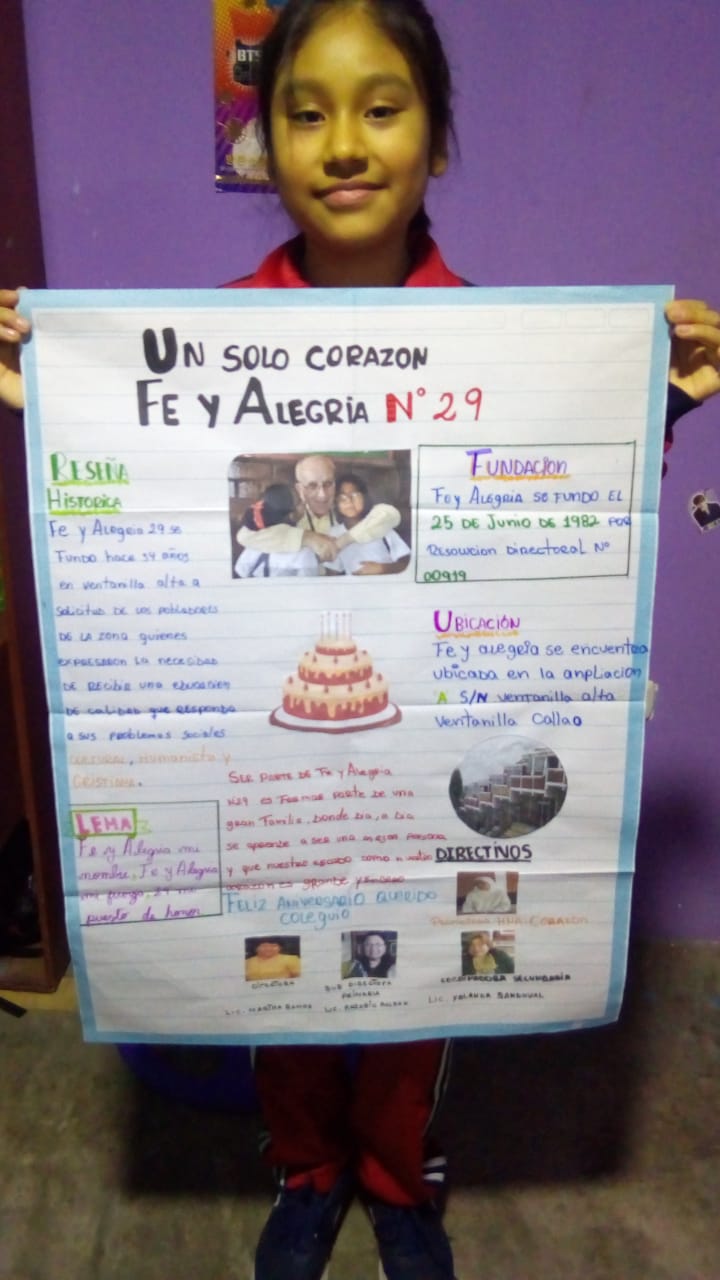 BTS
UN SOLO CORAZON
FE Y ALEGRIA N° 29
RESEÑA
HISTORICA
Fe y Alegria 29 se
Fundo hace 39 años
en ventanilla alta a
solicitud DE LOS POBLADORES
DE LA ZONA QUIENES
EXPRESARON LA NECESIDAD
DE RECIBIR UNA EDUCACION
DE CALIDAD QUE RESPONDA
a sus PROBLEMAS SOCIALES
CULTURAL, Humanista y
CRISTIANA.
LEMA
Fe y Alegria mi
nombre, Fe y Alegria
mi fuerza, 29 mi
puesto de honor
FUNDACION
Fe y ALEGRIA SE FUNDO EL
25 DE Junio DE 1982 POR
RESOLUCION DIRECTORAL N°
00919
UBICACIÓN
Fe y alegria se encuentra
ubicada en la anpliacion
A S/N ventanilla alta
Ventanilla Callao
SER PARTE DE Fe y Alegria
N29 es Formar parte de una
gran Familia, Donde Dia, a Dia
se aprende a ser una mejor persona
y que nuestro escudo como nuestro
corazon es grande y
FELIZ ANIVERSARIO QUERIDO
COLEGUIO
DIRECTINOS
HNA. CORAZON
DIRECTORA
LIC. MARTHA RAMOS
SUB DIRECTORA
PRIMARIA
LIC.
COORDINADORA SECUNDARIA
LIC. YOLANDA SANDOVAL